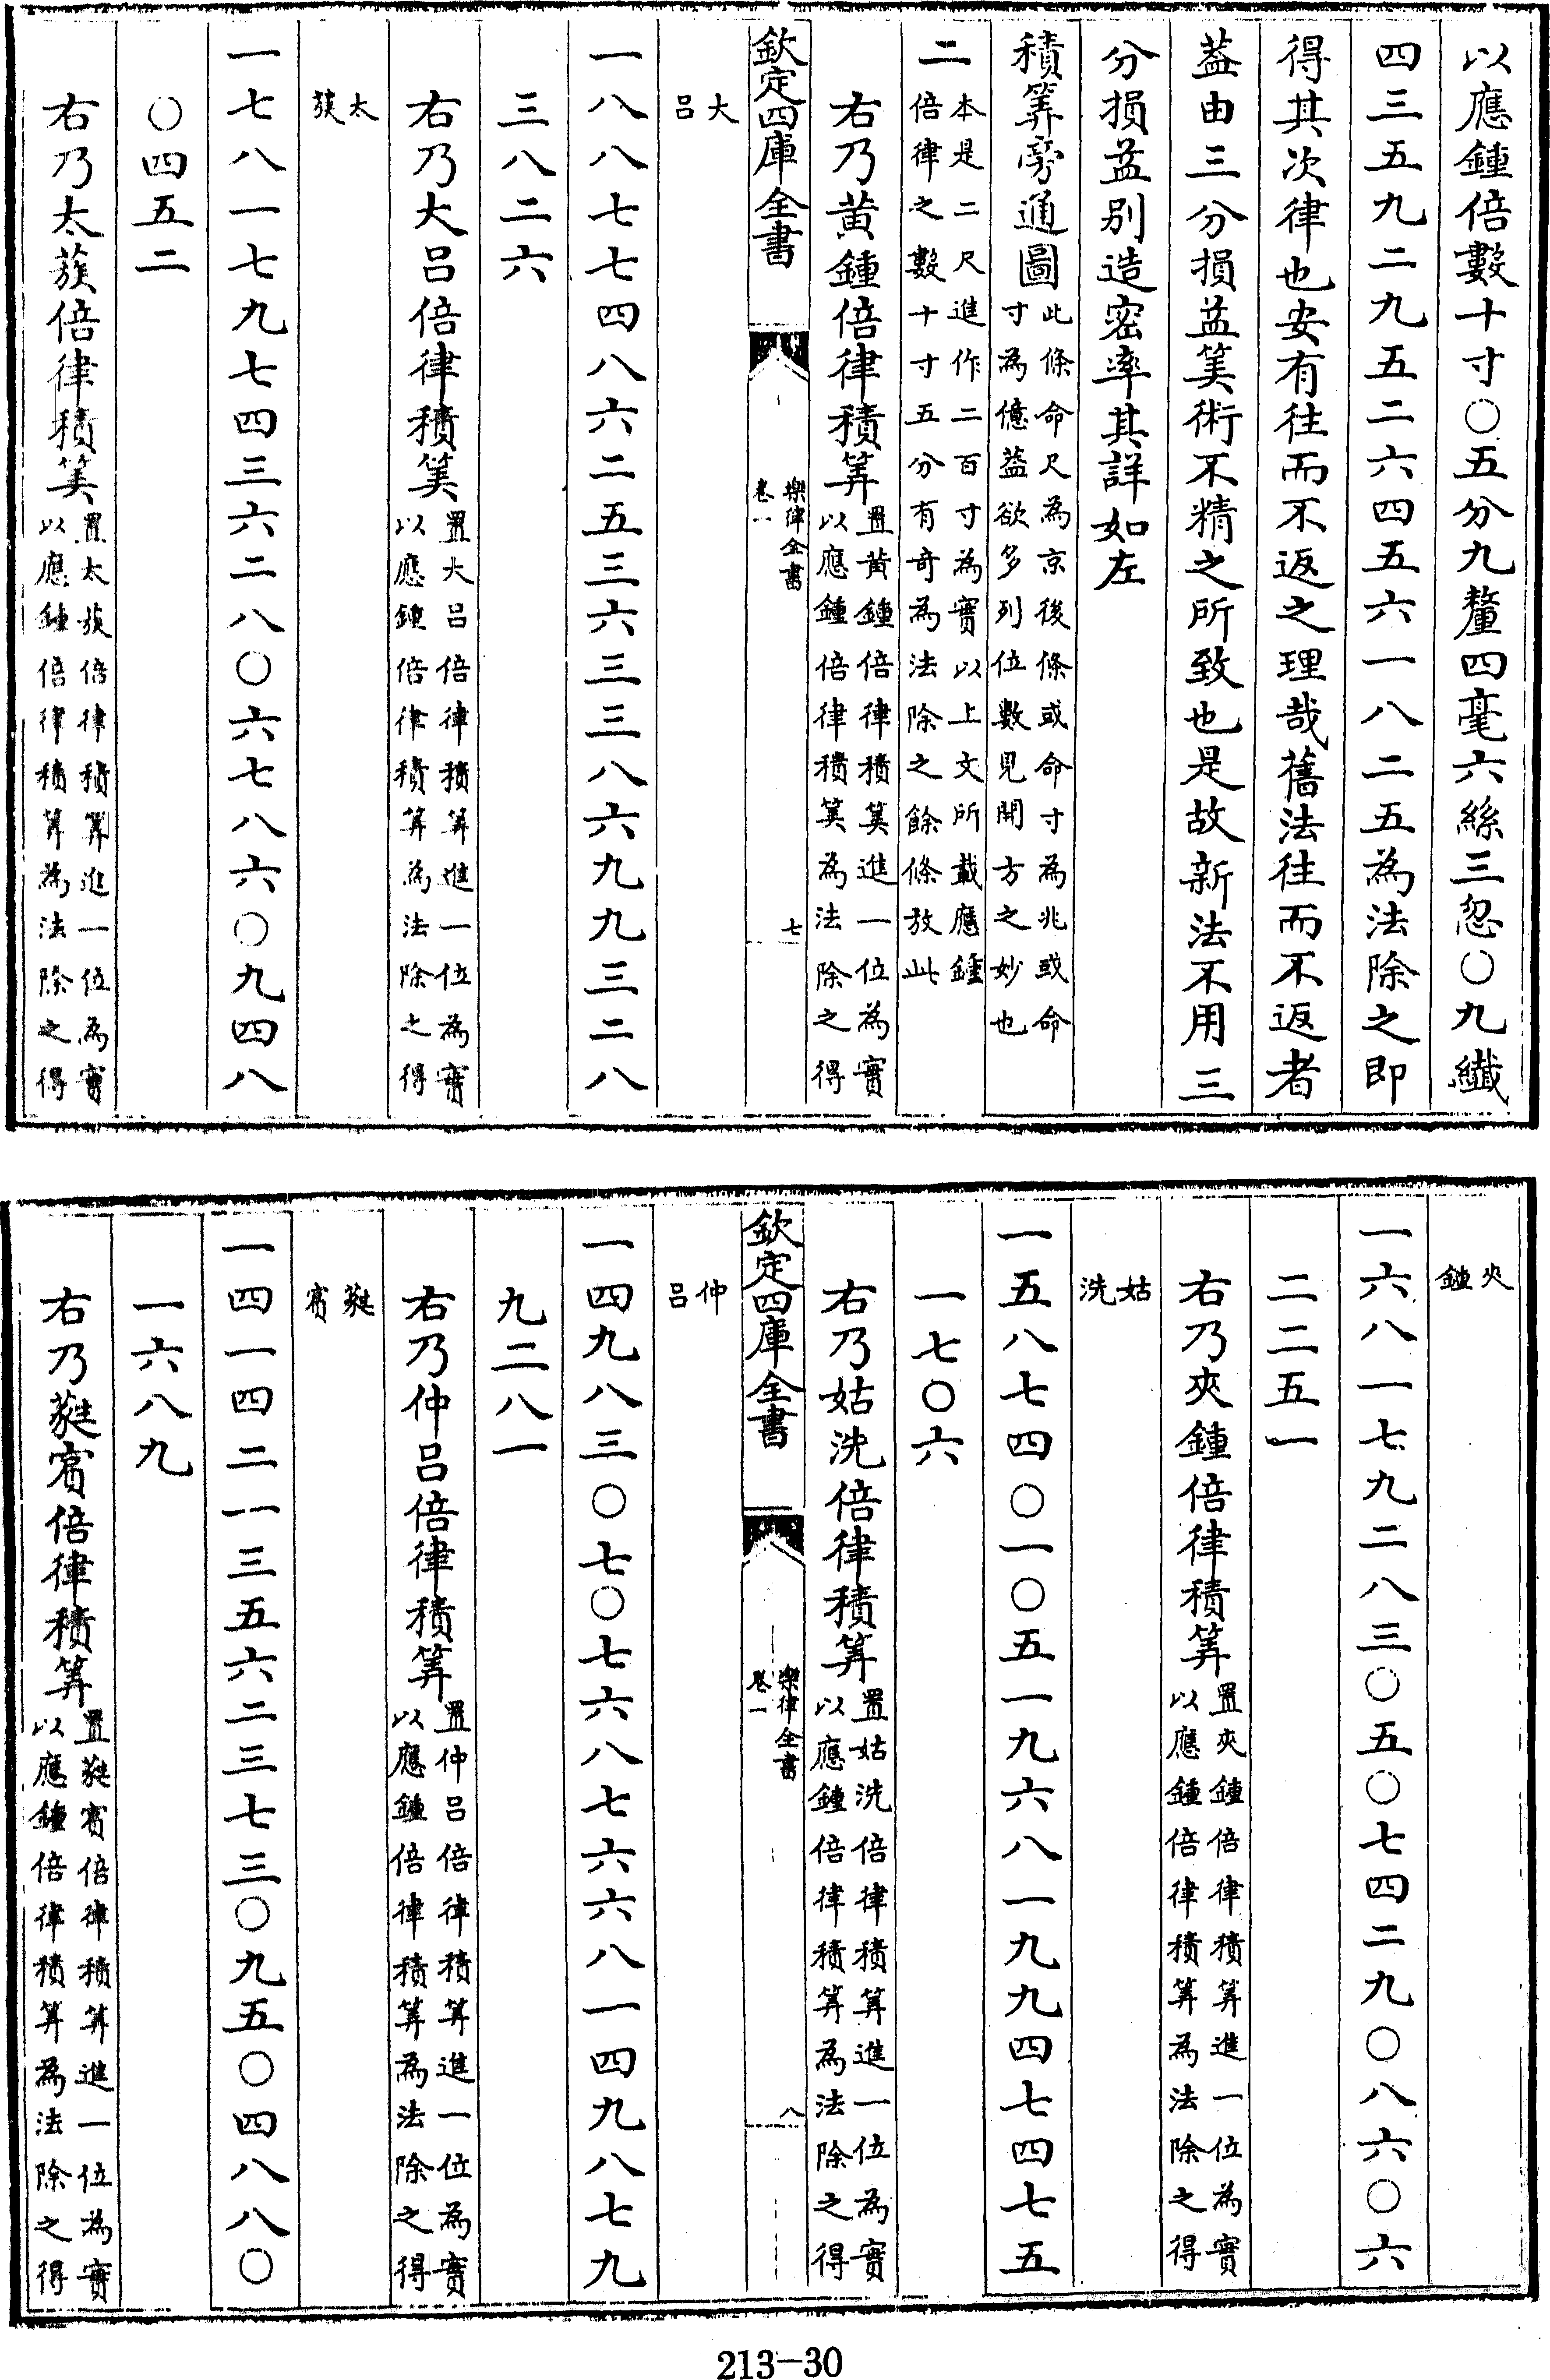 以應鍾倍數十寸〇五分九釐四毫六絲三忽〇九纖
四三五九二九五二六四五六一八二五為法除之即
得其次律也安有往而不返之理哉舊法往而不返者
葢由三分損益筭術不精之所致也是故新法不用三
分損益别造密率其詳如左
積筭旁通圖
此條命尺為京後條或命寸為兆或命
寸為億葢欲多列位數見開方之妙也
二
本是二尺進作二百寸為實以上文所載應鍾
倍律之數十寸五分有奇為法除之餘條放此
右乃黄鍾倍律積筭
置黄鍾倍律積筭進一位為實
以應鍾倍律積筭為法除之得
欽定四庫全書
樂律全書
卷一
七
大呂
一八八七七四八六二五三六三三八六九九三二八
三八二六
右乃大呂倍律積筭
置大呂倍律積筭進一位為實
以應鍾倍律積筭為法除之得
太蔟
一七八一七九七四三六二八〇六七八六〇九四八
〇四五二
右乃太蔟倍律積筭
置太蔟倍律積筭進一位為實
以應鍾倍律積筭為法除之得
夾鍾
一六八一七九二八三〇五〇七四二九〇八六〇六
二二五一
右乃夾鍾倍律積筭
置夾鍾倍律積筭進一位為實
以應鍾倍律積筭為法除之得
姑洗
一五八七四〇一〇五一九六八一九九四七四七五
一七〇六
右乃姑洗倍律積筭
置姑洗倍律積筭進一位為實
以應鍾倍律積筭為法除之得
欽定四庫全書
樂律全書
卷一
八
仲呂
一四九八三〇七〇七六八七六六八一四九八七九
九二八一
右乃仲呂倍律積筭
置仲呂倍律積筭進一位為實
以應鍾倍律積筭為法除之得
蕤賓
一四一四二一三五六二三七三〇九五〇四八八〇
一六八九
右乃蕤賓倍律積筭
置蕤賓倍律積筭進一位為實
以應鍾倍律積筭為法除之得
213-30